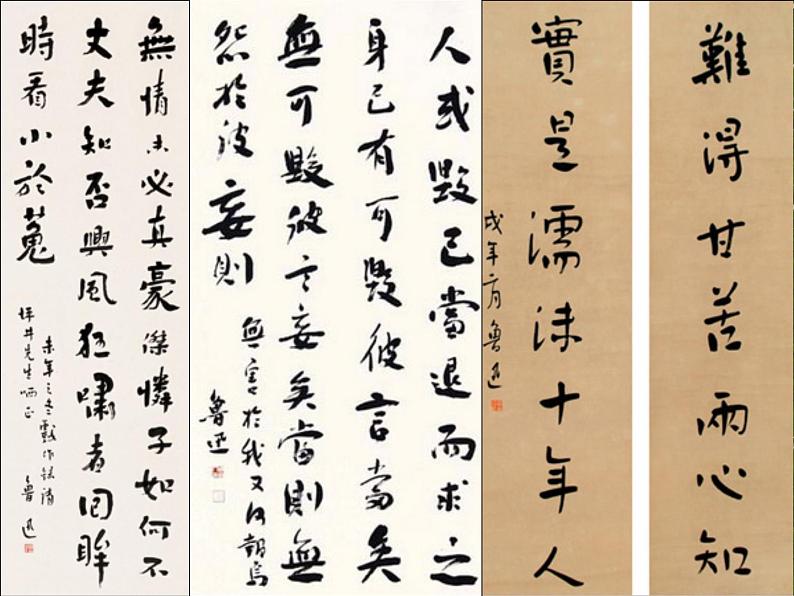 無情未必真豪傑憐子如何不
丈夫知否興風狂嘯者回眸
時看小於菟
未年之冬戲作錄請
坪井先生哂正
魯迅
人或毀己當退而求之
身己有可毀彼言當矣
無可毀彼言妄矣當則無
怨於彼妄則
無害於我又何報焉
魯迅
難得甘苦兩心知
實是濡沫十年人
戌年月魯迅